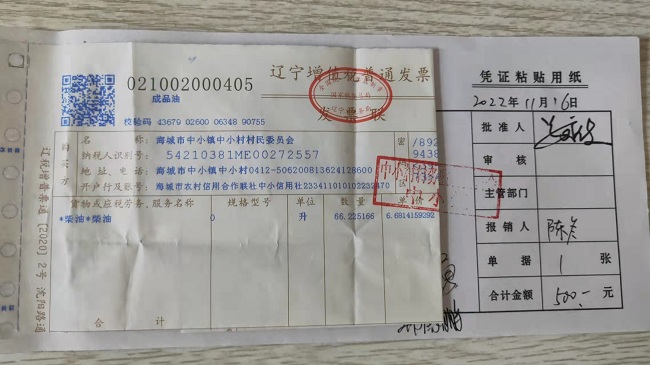 021002000405
辽宁增值税普通发票
成品油
发票联
校验码 43679 02600 06348 90755
购买方
名 称：海城市中小镇中小村村民委员会
纳税人识别号：54210381ME00272557
地址、电话：海城市中小镇中小村0412-506200813624128600
开户行及账号：海城市农村信用合作联社中小信用社233411010102232470
密
区
/892
9438
货物或应税劳务、服务名称
规格型号
单位
数 量
单 价
*柴油*柴油
0
升
66.225166
6.6814159292
合 计
辽税增普票通〔2020〕2号 沈阳路通
凭证粘贴用纸
2022年11月16日
批准人
审 核
主管部门
报销人
单 据 1 张
合计金额 500.- 元